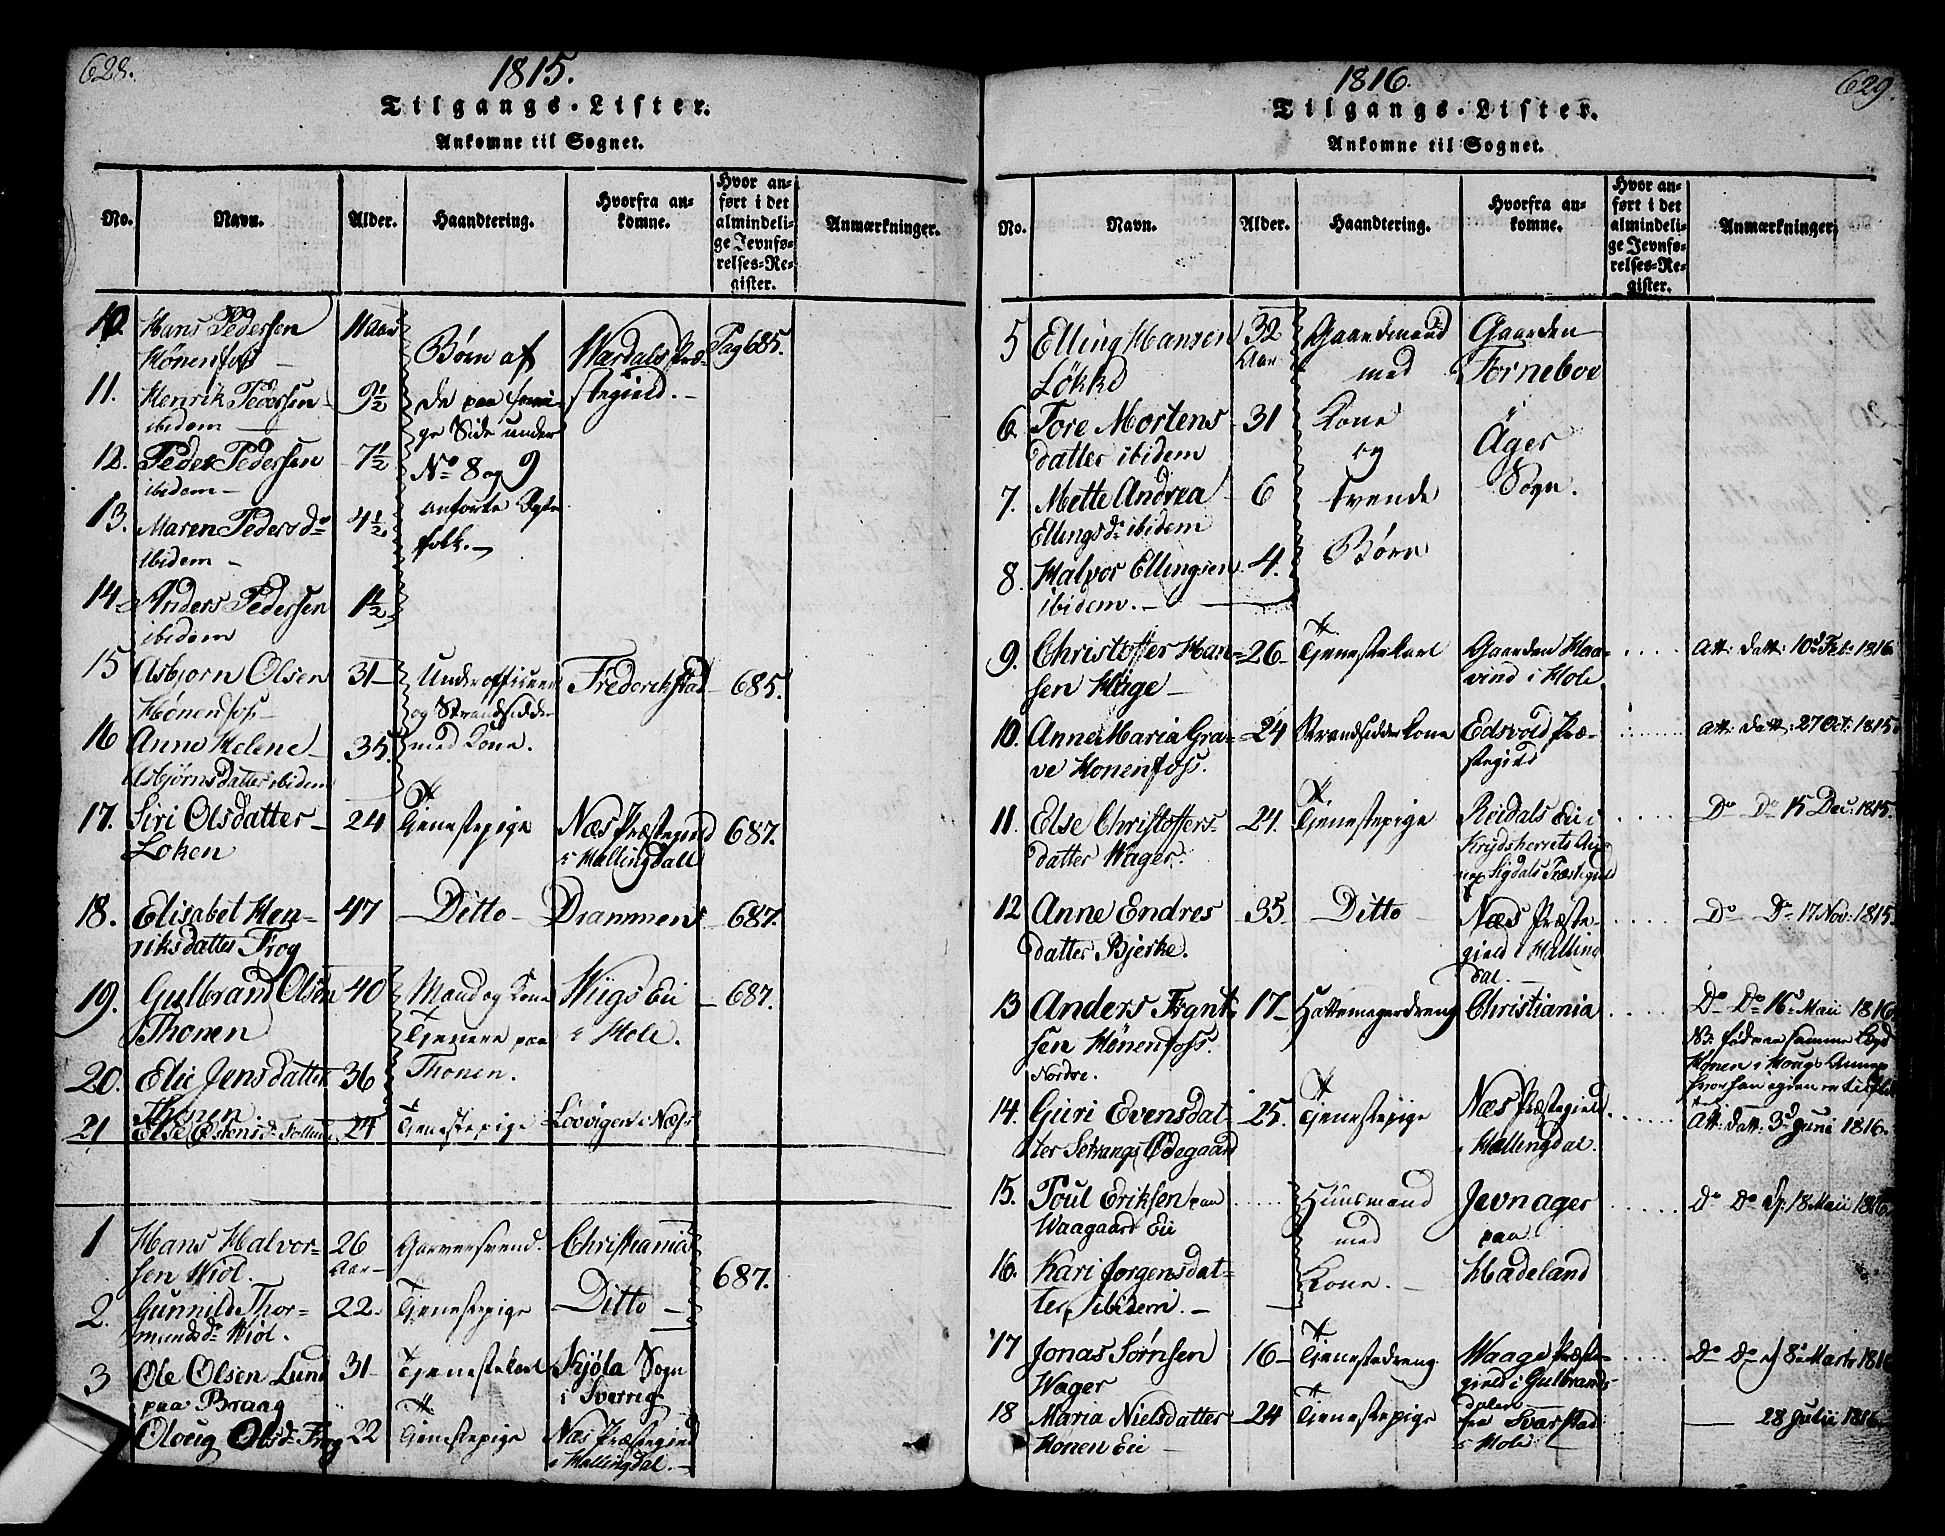 628.
1815.
Tilgangs-Lister.
Ankomne til Sognet.
No.
Navn.
Alder.
Haandtering.
Hvorfra an-
komne.
Hvor an-
ført i det
almindeli-
ge Jevnfø-
relses-Re-
gister.
Anmærkninger.
10. Hans Pedersen
Hönenfoss
11 aar
Börn af
de paa forri-
ge Side under
No 8 og 9
anførte Egte
folk.
Wærdals Præ-
stegield.
Pag 685.
11. Henrik Pedersen
ibidem
9½
12. Peder Pedersen
ibidem
7½
13. Maren Pedersd.
ibidem
4½
14. Anders Pedersen
ibidem
1½
15 Asbjorn Olsen
Hönenfos
31
Underofficeer
og Strandsidder
med Kone.
Frederikstad
685.
16 Anne Helene
Asbjörnsdatter ibidem
35.
17. Siri Olsdatter
Loken
24
Tjenestepige
Næs Præstegield
i Hallingdall
687.
18. Elisabet Hen-
riksdatter Frog
47
Ditto
Drammens
687.
19. Gulbrand Olsen
Thonen
40
Mand og Kone
Tjenere paa
Thonen.
Wiigs Eie
i Hole.
687.
20. Elie Jensdatter
Thonen
36
21 Else
24
Tjenestepige
Lovigen i Næss
1 Hans Halvor-
sen Wiöl.
26
Aar
Garversvend.
Christiania
687.
2. Gunnild Thor-
mundsd. Wiöl.
22.
Tjenestepige
Ditto
3 Ole Olsen Lund
paa Braag
31
Tjenestekarl
Skjöla Sogn
i Sverrig
Oloug Olsd. Frog
22
Tjenestepige
Næs Præstegield
i Hallingdal.
629.
1816.
Tilgangs-Lister.
Ankomne til Sognet.
No.
Navn.
Alder.
Haandtering.
Hvorfra an-
komne.
Hvor an-
ført i det
almindeli-
ge Jevnfø-
relses-Re-
gister.
Anmærkninger.
5 Elling Hansen
Lökke
32
Aar
Gaardmand
med
Kone
og
tvende
Börn
Gaarden
Torneboe
Äger
Sogn.
6 Tore Mortens
datter ibidem
31
7. Mette Andrea
Ellingsd. ibidem
6
8. Halvor Ellingsen
ibidem.
4.
9. Christoffer Han-
sen Hage
26
Tjenestekarl
Gaarden Haa-
vind i Hole
Att: datt: 10d Feb: 1816
10. Anne Maria Gra-
ve Hönenfoss.
24
Strandsidderkone
Edsvold Præ-
stegield
Att: datt: 27 Oct: 1815.
11. Else Christoffers-
datter Wager.
24.
Tjenestepige
Reidals Eie i
Krydsherrets
Sigdals Præstegield
Do Do 15 Dec: 1815.
12 Anne Endres
datter Bjerke.
35.
Ditto
Næs Præste-
gield i Halling
dal.
Do Do 17 Nov: 1815.
13 Anders
sen Hönenfoss.
Nordre.
17
Hattemagerdreng
Christiania
Do Do 16d Maii 1816
NB: föd paa samme
Hönen i Houg
hvorhen
14. Guri Evensdat-
ter Setrangs Ödegaard
25.
Tjenestepige
Næs Præstegield
i Hallingdal.
Att: datt: 3d Juni 1816.
15. Poul Eriksen paa
Waagaard Eie
Huusmand
med
Kone.
Jevnager
paa
Hadeland
Do Do 18 Maii 1816.
16. Kari Jorgensdat-
ter, ibidem.
17 Jonas Sörnsen
Wager
16
Tjenestedreng
Waage Præste-
gield i Gulbrands-
dalen
Do Do 8d Marts 1816
18 Maria Nielsdatter
Hönen Eie
24
Tjenestepige
fra Svarstad
i Hole
28 Julii 1816